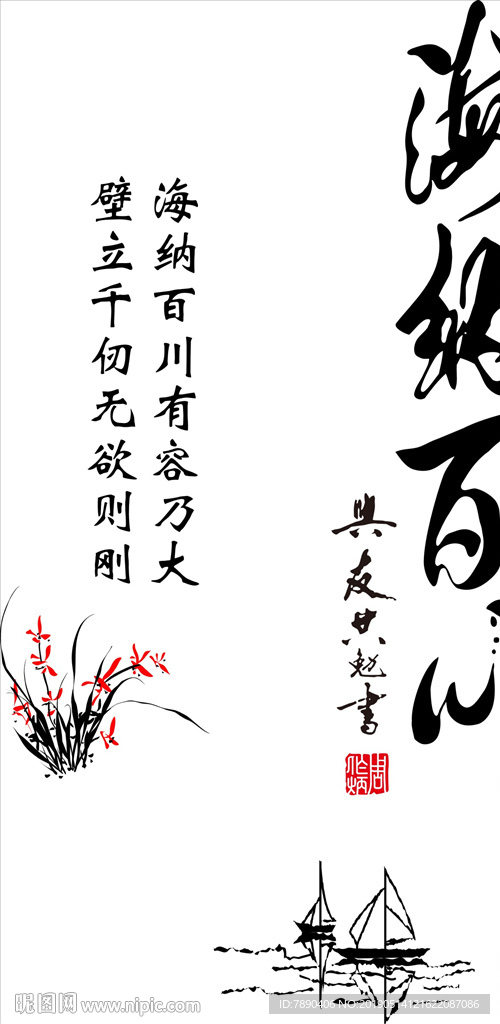 海纳百川
海纳百川有容乃大
壁立千仞无欲则刚
與友共勉書
昵图网 www.nipic.com